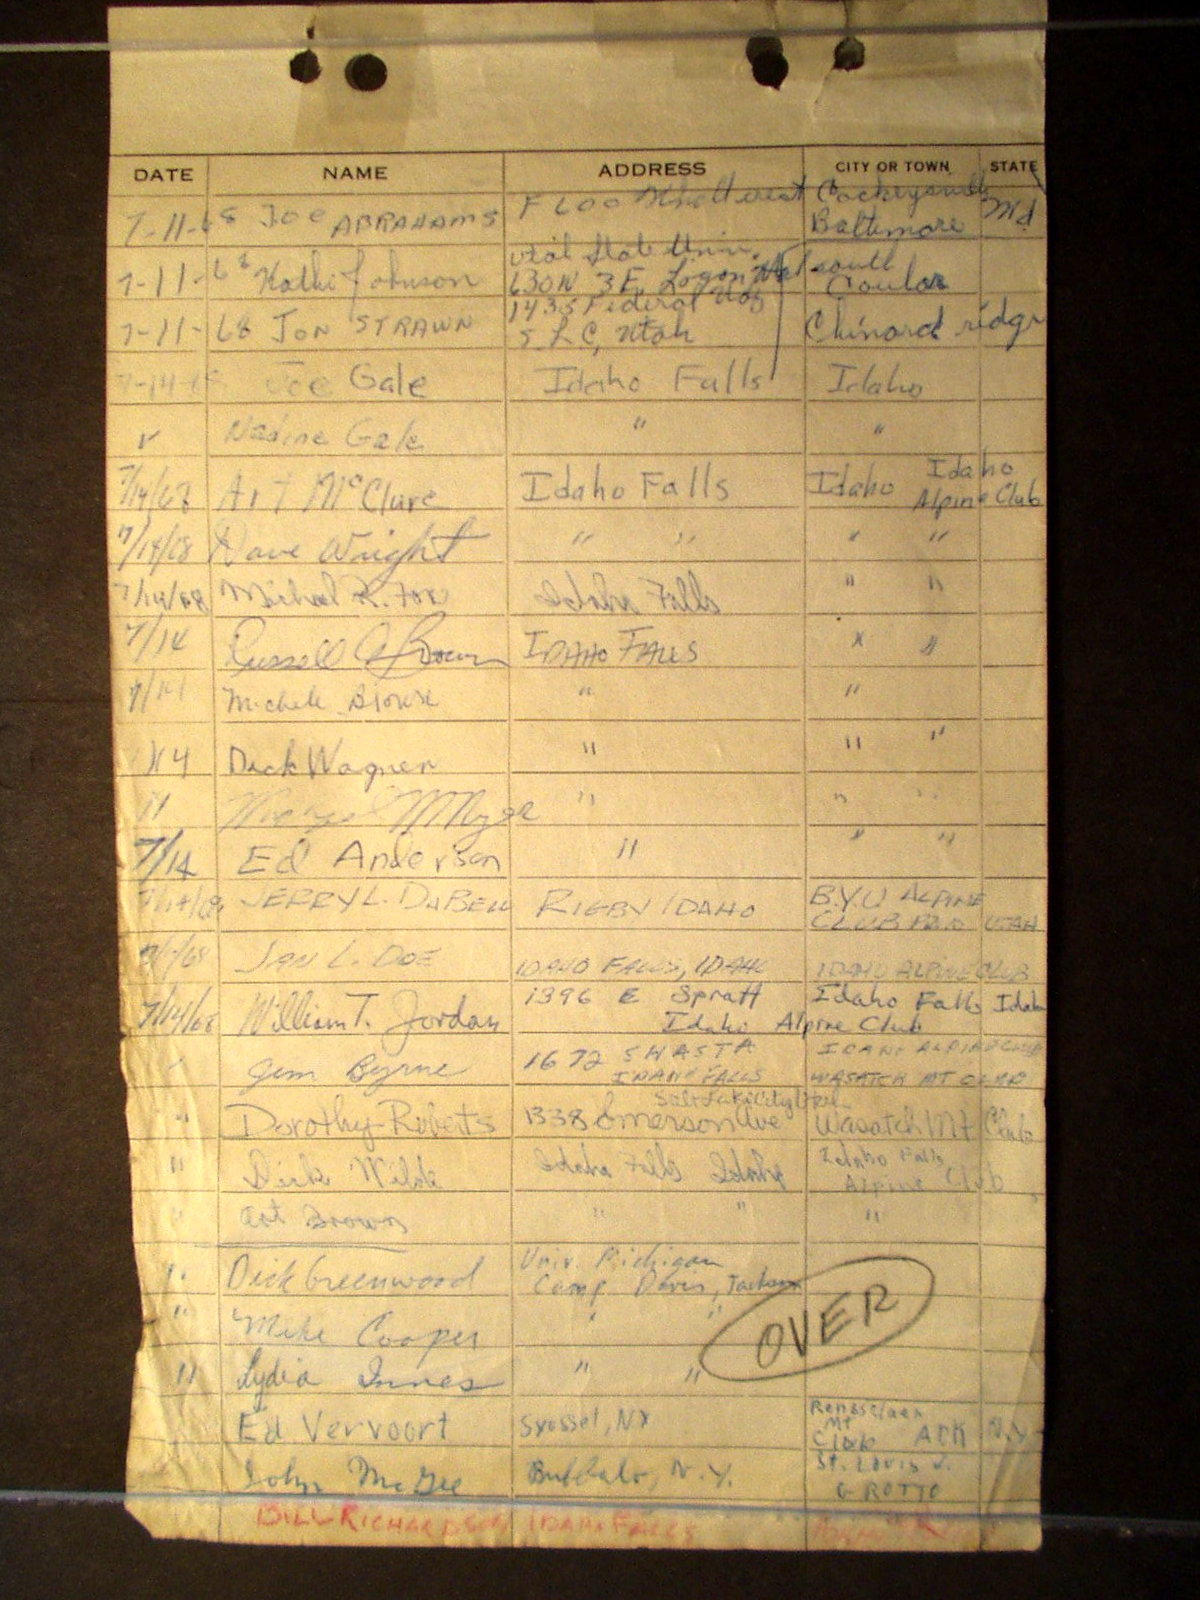 DATE NAME ADDRESS CITY OR TOWN STATE
7-11-68 JOE ABRAHAMS Cockeysville Baltimore Md
7-11-68 Kathi Johnson Utah State Univ. 630 N 3 E Logon south Coular
7-11-68 JON STRAWN 1435 Federal S L C, Utah ridge
7-14-68 Joe Gale Idaho Falls Idaho
Nadine Gale " "
7/14/68 Art McClure Idaho Falls Idaho Idaho Alpine Club
7/14/68 Dave Wright " " " "
7/14/68 Michael R. Fox Idaho Falls " "
7/14 Russell Brown IDAHO FALLS " "
7/14 Michele Browne " "
7/14 Dick Wagner " " "
" " " "
7/14 Ed Anderson " " "
7/14/68 JERRY L. DABELL RIGBY IDAHO B.Y.U ALPINE CLUB UTAH
JAN L. DOE IDAHO FALLS, IDAHO IDAHO ALPINE CLUB
7/14/68 William T. Jordan 1396 E Spratt Idaho Falls Idaho
Idaho Alpine Club
Jim Byrne 1672 SHASTA IDAHO FALLS IDAHO ALPINE CLUB WASATCH MT CLUB
" Dorothy Roberts 1338 Emerson Ave Salt Lake City Utah Wasatch Mt Club
" Dick Wilde Idaho Falls Idaho Idaho Falls Alpine Club
" Art Brown " " "
" Dick Greenwood Univ. Michigan Camp Davis, Jackson
" Mike Cooper " "
" Lydia Innes " "
OVER
Ed Vervoort Syosset, NY Rensselaer Mt Club ADK N.Y.
John McGee Buffalo, N.Y. St. Louis U. GROTTO
BILL RICHARDSON IDAHO FALLS